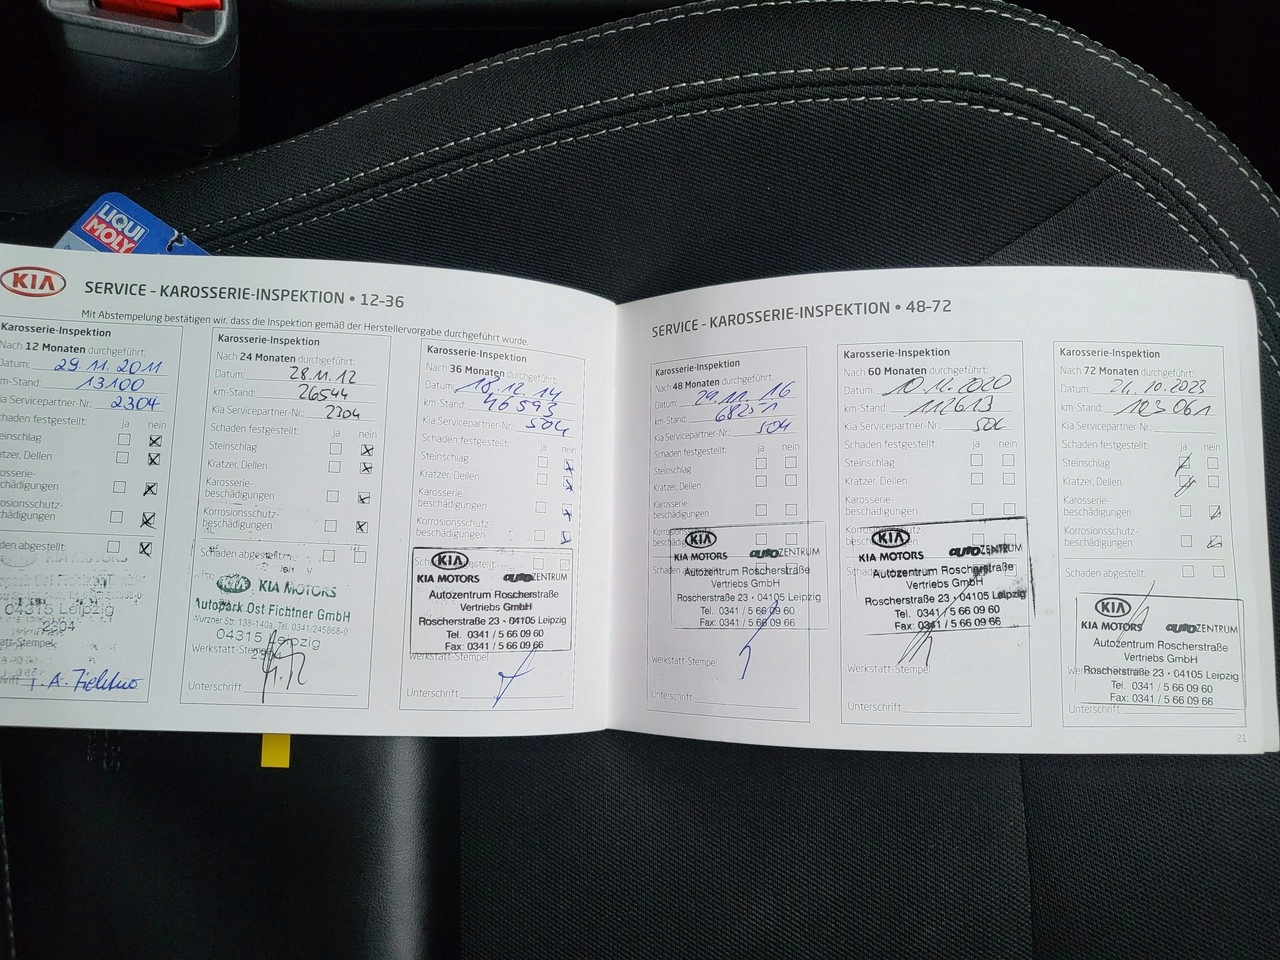 LIQUI
MOLY
KIA
SERVICE – KAROSSERIE-INSPEKTION • 12–36
Mit Abstempelung bestätigen wir, dass die Inspektion gemäß der Herstellervorgabe durchgeführt wurde.
Karosserie-Inspektion
Nach 12 Monaten durchgeführt:
Datum: 29.11.2011
km-Stand: 13100
Kia Servicepartner-Nr.: 2304
Schaden festgestellt:
ja nein
Steinschlag
Kratzer, Dellen
04315 Leipzig
Karosserie-Inspektion
Nach 24 Monaten durchgeführt:
Datum: 28.11.12
km-Stand: 26544
Kia Servicepartner-Nr.: 2304
Schaden festgestellt:
ja nein
Steinschlag
Kratzer, Dellen
Karosserie-
beschädigungen
Korrosionsschutz-
beschädigungen
Schaden abgestellt:
KIA KIA MOTORS
Autopark Ost Fichtner GmbH
Wurzner Str. 138-140a, Tel. 0341/245868-0
04315 Leipzig
Werkstatt-Stempel
Unterschrift
Karosserie-Inspektion
Nach 36 Monaten durchgeführt:
Datum: 18.12.14
km-Stand: 46593
Kia Servicepartner-Nr.: 504
Schaden festgestellt:
ja nein
Steinschlag
Kratzer, Dellen
Karosserie-
beschädigungen
Korrosionsschutz-
beschädigungen
KIA
KIA MOTORS autoZENTRUM
Autozentrum Roscherstraße
Vertriebs GmbH
Roscherstraße 23 · 04105 Leipzig
Tel. 0341 / 5 66 09 60
Fax: 0341 / 5 66 09 66
Werkstatt-Stempel
Unterschrift
SERVICE – KAROSSERIE-INSPEKTION • 48–72
Karosserie-Inspektion
Nach 48 Monaten durchgeführt:
Datum: 29.11.16
km-Stand: 68251
Kia Servicepartner-Nr.: 504
Schaden festgestellt:
ja nein
Steinschlag
Kratzer, Dellen
Karosserie-
beschädigungen
Korrosionsschutz-
KIA
KIA MOTORS autoZENTRUM
Autozentrum Roscherstraße
Vertriebs GmbH
Roscherstraße 23 · 04105 Leipzig
Tel. 0341 / 5 66 09 60
Fax: 0341 / 5 66 09 66
Werkstatt-Stempel
Unterschrift
Karosserie-Inspektion
Nach 60 Monaten durchgeführt:
Datum: 10.11.2020
km-Stand: 112613
Kia Servicepartner-Nr.:
Schaden festgestellt:
ja nein
Steinschlag
Kratzer, Dellen
Karosserie-
beschädigungen
KIA
KIA MOTORS autoZENTRUM
Autozentrum Roscherstraße
Vertriebs GmbH
Roscherstraße 23 · 04105 Leipzig
Tel. 0341 / 5 66 09 60
Fax: 0341 / 5 66 09 66
Werkstatt-Stempel
Unterschrift
Karosserie-Inspektion
Nach 72 Monaten durchgeführt:
Datum: 24.10.2023
km-Stand: 123061
Kia Servicepartner-Nr.:
Schaden festgestellt:
ja nein
Steinschlag
Kratzer, Dellen
Karosserie-
beschädigungen
Korrosionsschutz-
beschädigungen
Schaden abgestellt:
KIA
KIA MOTORS autoZENTRUM
Autozentrum Roscherstraße
Vertriebs GmbH
Roscherstraße 23 · 04105 Leipzig
Tel. 0341 / 5 66 09 60
Fax: 0341 / 5 66 09 66
Unterschrift
21